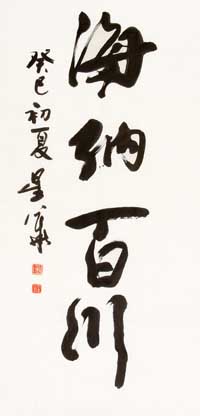 海纳百川
癸巳初夏星